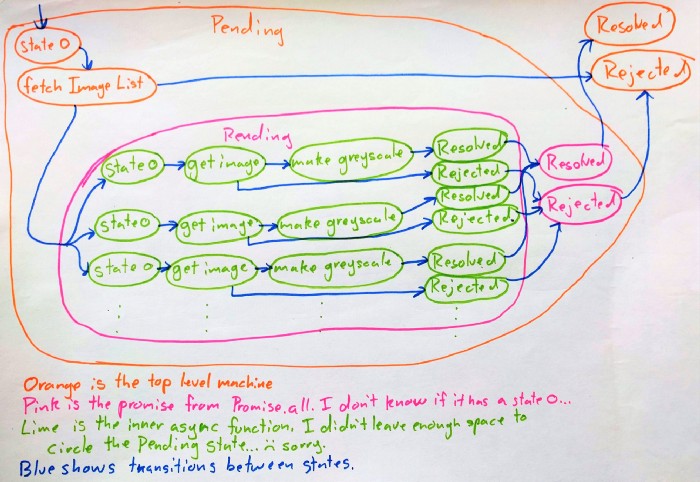 Pending
Resolved
state 0
Rejected
fetch Image List
Pending
state 0
get image
make greyscale
Resolved
Rejected
Resolved
Rejected
state 0
get image
make greyscale
Resolved
Rejected
state 0
get image
make greyscale
Resolved
Rejected
Orange is the top level machine
Pink is the promise from Promise.all. I don't know if it has a state 0...
Lime is the inner async function. I didn't leave enough space to
circle the Pending state... :( sorry.
Blue shows transitions between states.